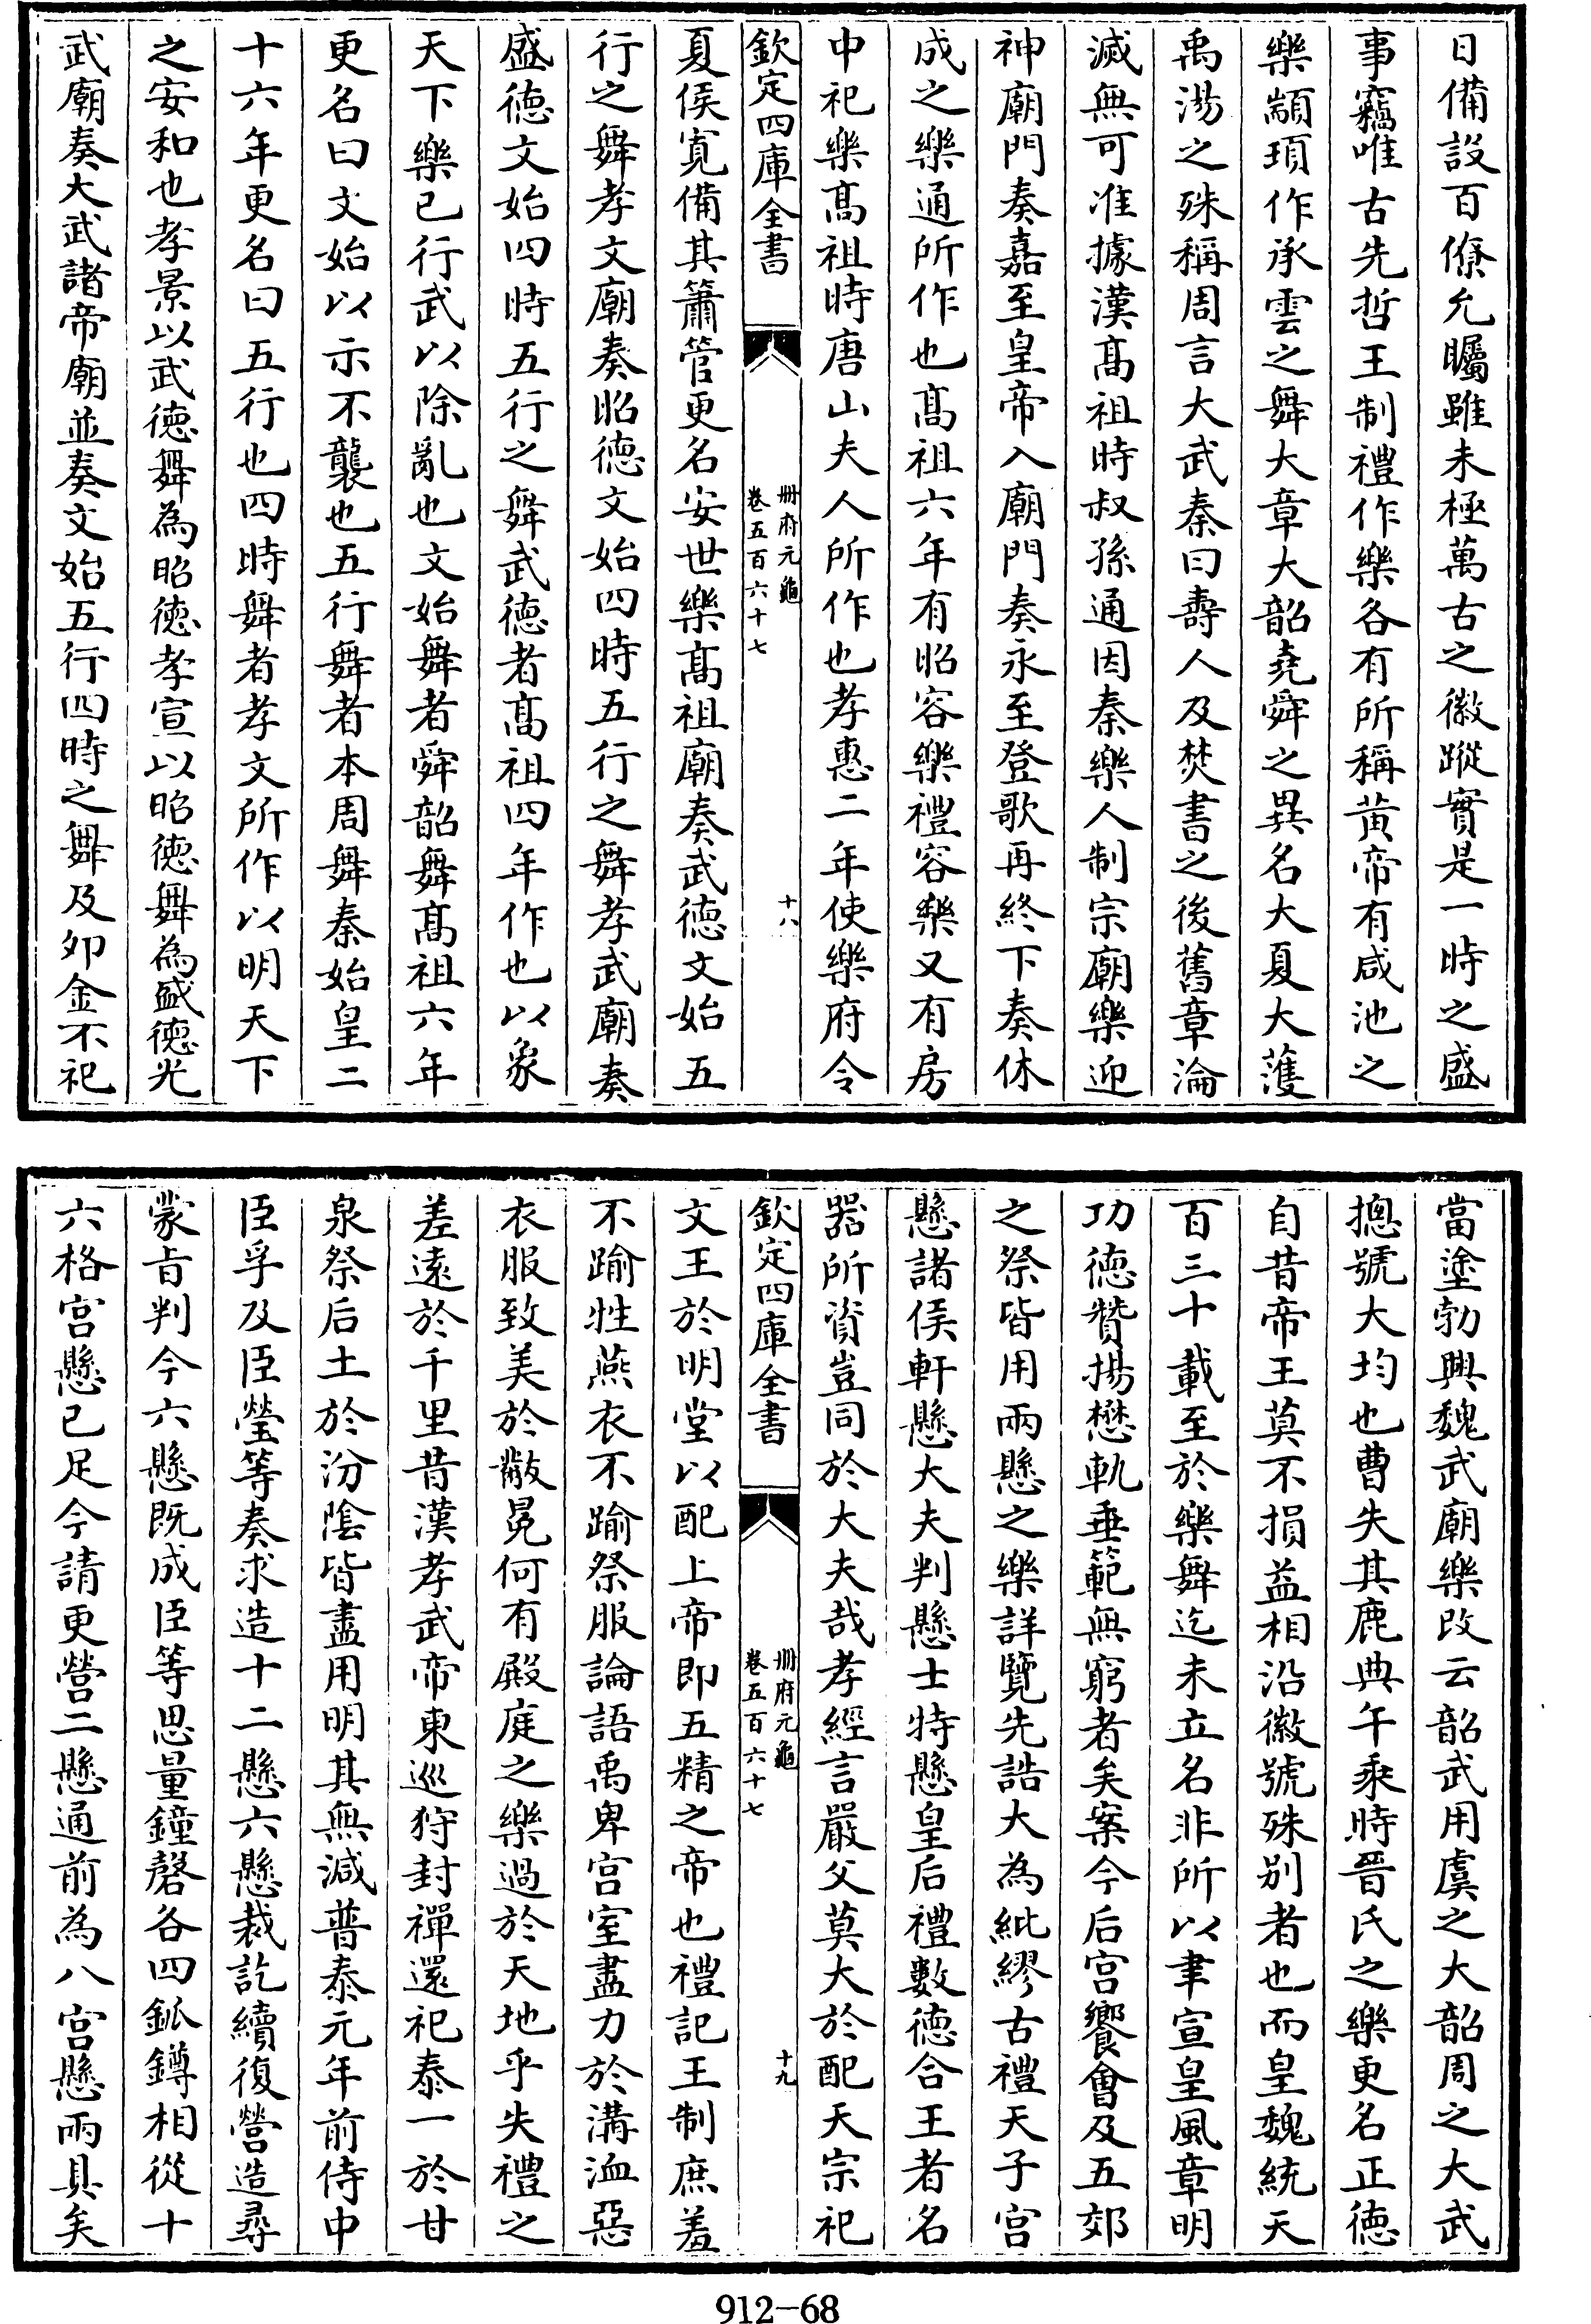 日備設百僚允矚雖未極萬古之徽蹤實是一時之盛
事竊唯古先哲王制禮作樂各有所稱黄帝有咸池之
樂顓頊作承雲之舞大章大韶堯舜之異名大夏大濩
禹湯之殊稱周言大武秦曰夀人及焚書之後舊章淪
滅無可准據漢髙祖時叔孫通因秦樂人制宗廟樂迎
神廟門奏嘉至皇帝入廟門奏永至登歌再終下奏休
成之樂通所作也髙祖六年有昭容樂禮容樂又有房
中祀樂髙祖時唐山夫人所作也孝惠二年使樂府令
欽定四庫全書
冊府元龜
卷五百六十七
十八
夏侯寛備其簫管更名安世樂髙祖廟奏武徳文始五
行之舞孝文廟奏昭徳文始四時五行之舞孝武廟奏
盛徳文始四時五行之舞武徳者髙祖四年作也以象
天下樂已行武以除亂也文始舞者舜韶舞髙祖六年
更名曰文始以示不襲也五行舞者本周舞秦始皇二
十六年更名曰五行也四時舞者孝文所作以明天下
之安和也孝景以武徳舞為昭徳孝宣以昭徳舞為盛徳光
武廟奏大武諸帝廟並奏文始五行四時之舞及夘金不祀
當塗勃興魏武廟樂改云韶武用虞之大韶周之大武
摠號大均也曹失其鹿典午乘時晉氏之樂更名正徳
自昔帝王莫不損益相沿徽號殊别者也而皇魏統天
百三十載至於樂舞迄未立名非所以聿宣皇風章明
功徳贊揚懋軌垂範無窮者矣案今后宫饗會及五郊
之祭皆用兩懸之樂詳覽先誥大為紕繆古禮天子宫
懸諸侯軒懸大夫判懸士特懸皇后禮數徳合王者名
器所資豈同於大夫哉孝經言嚴父莫大於配天宗祀
欽定四庫全書
冊府元龜
卷五百六十七
十九
文王於明堂以配上帝即五精之帝也禮記王制庶羞
不踰牲燕衣不踰祭服論語禹卑宫室盡力於溝洫惡
衣服致美於黻冕何有殿庭之樂過於天地乎失禮之
差遠於千里昔漢孝武帝東廵狩封禪還祀泰一於甘
泉祭后土於汾陰皆盡用明其無減普泰元年前侍中
臣孚及臣瑩等奏求造十二懸六懸裁訖續復營造尋
蒙㫖判今六懸既成臣等思量鐘磬各四鈲鎛相從十
六格宫懸已足今請更營二懸通前為八宫懸兩具矣
912-68